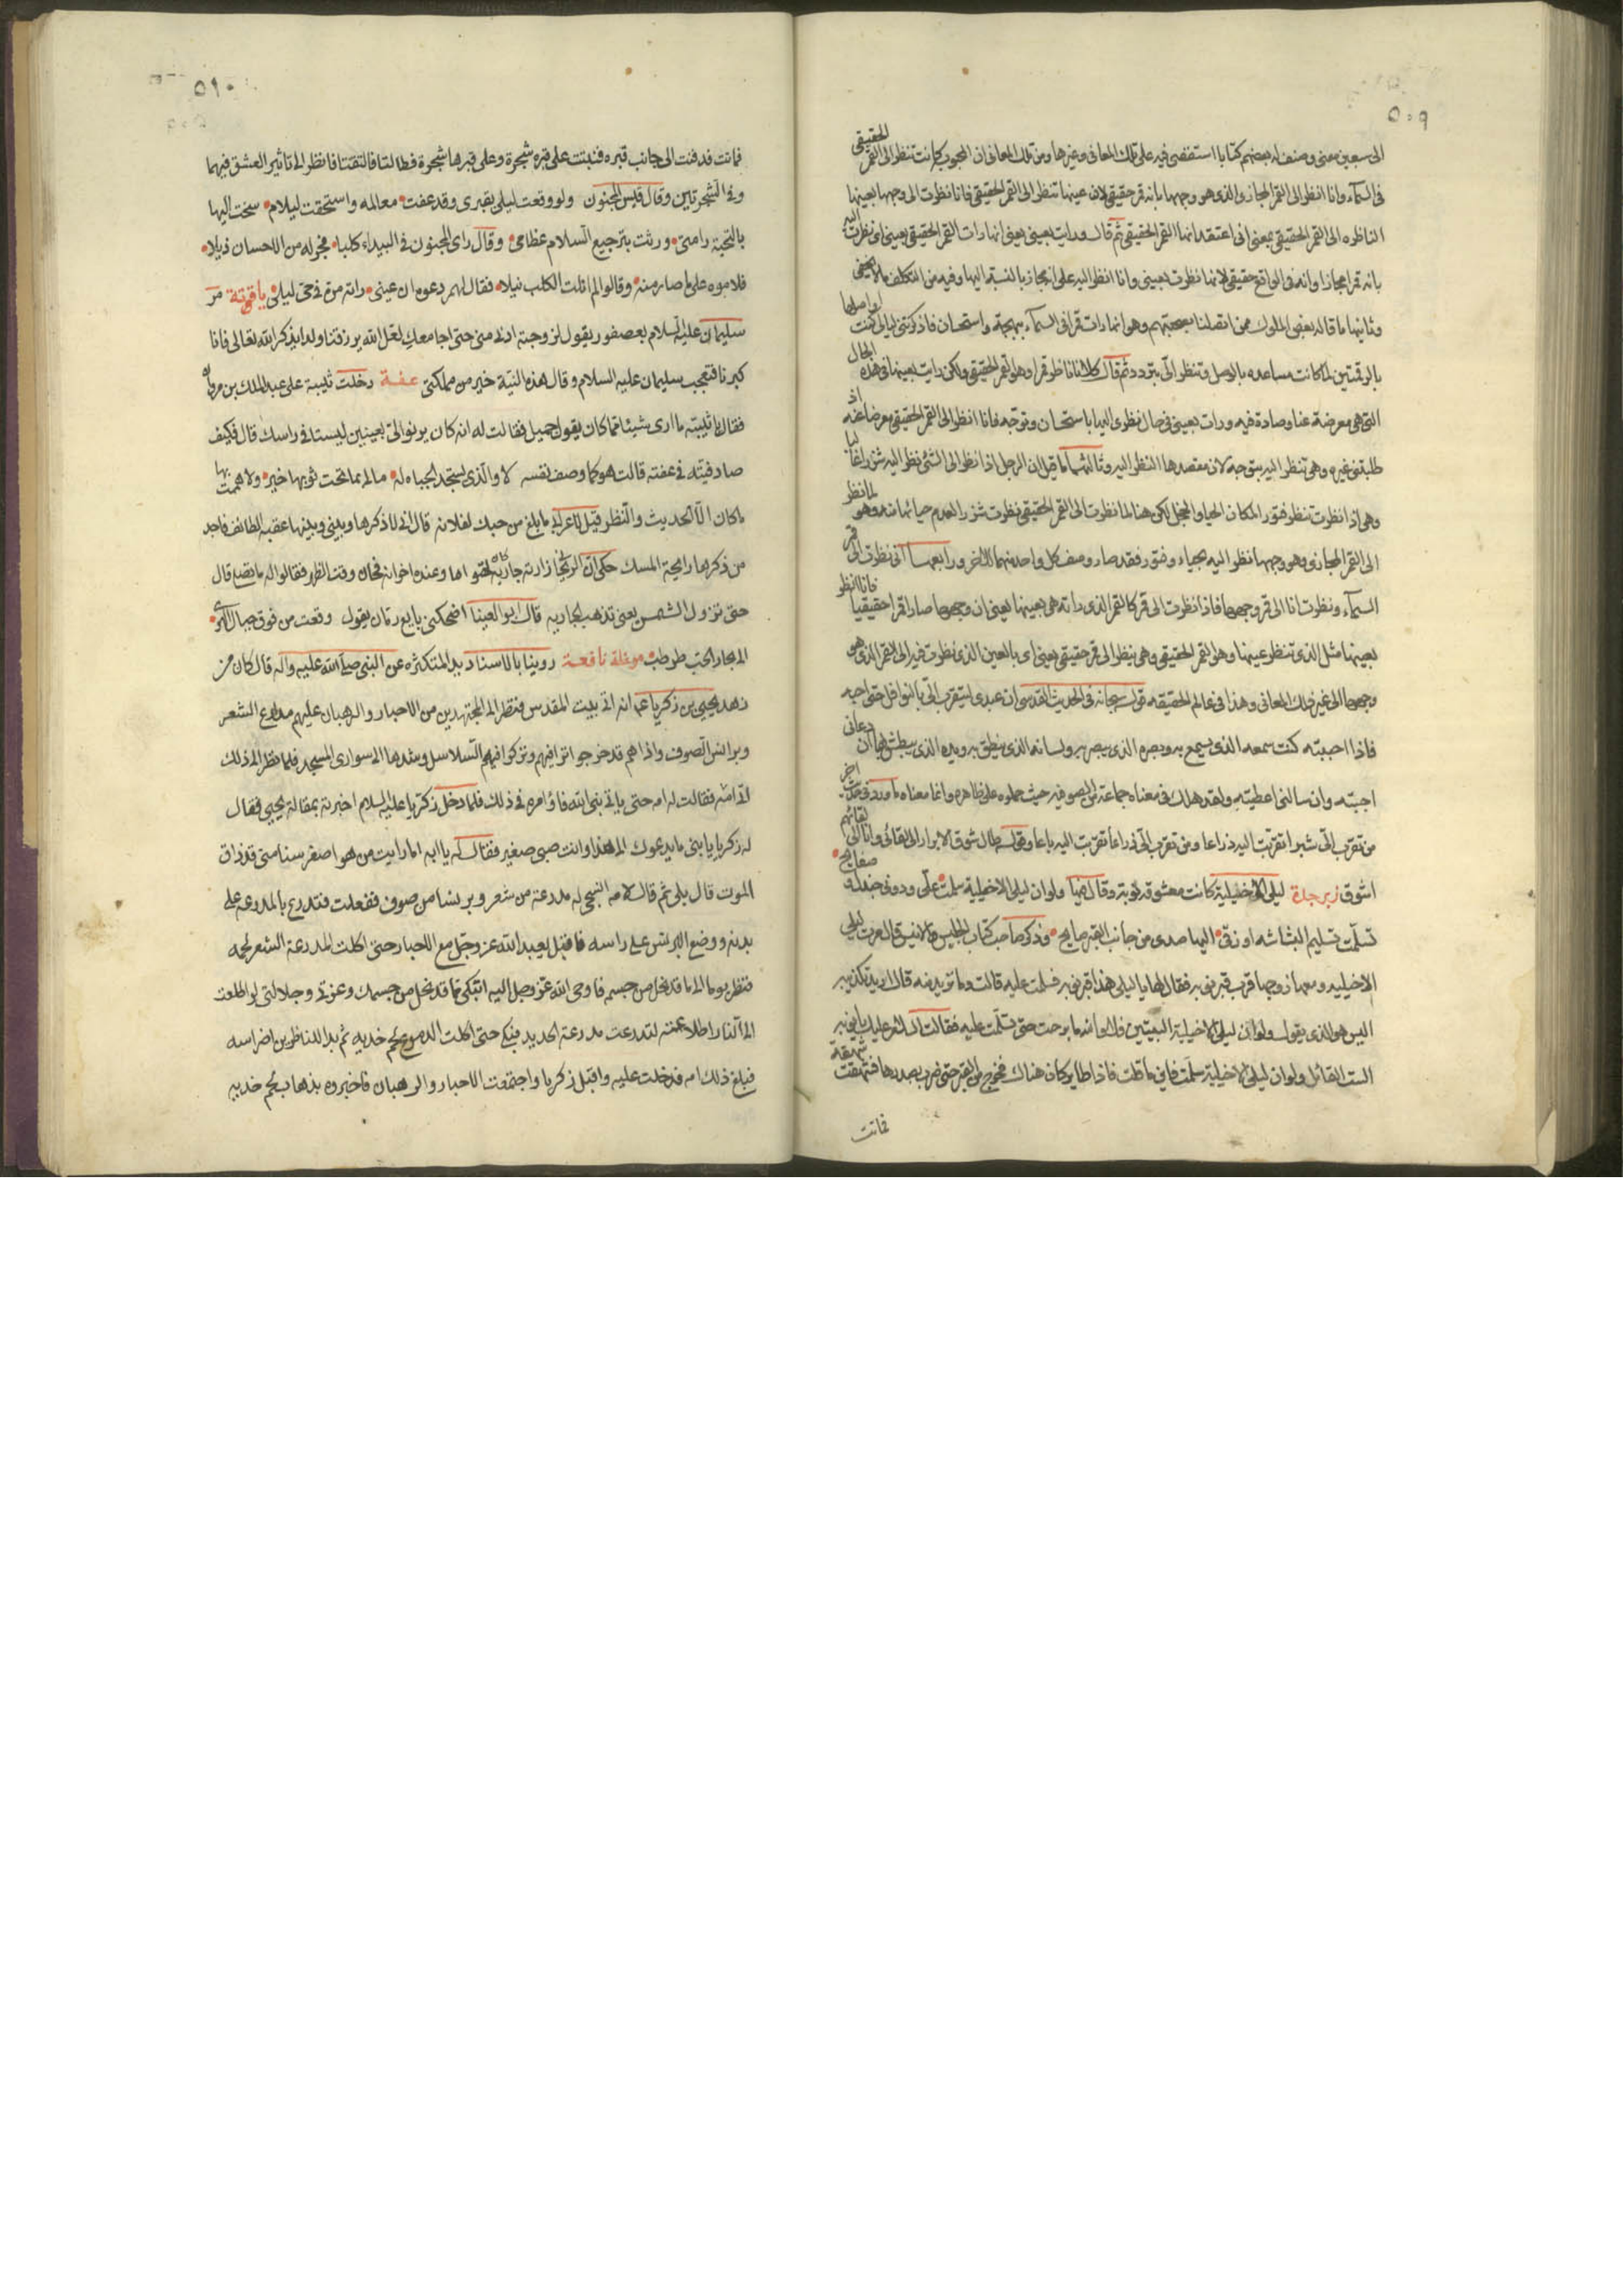 ٥٠٩
الى سبعين معنى وصنف له بعضهم كتابا استقصى فيه على تلك المعانى وغيرها ومن تلك المعانى ان المحبوبة كانت تنظر الى القمر الحقيقى
فى السماء وانا انظر الى القمر المجازى الذى هو وجهها بانه قمر حقيقى لان عينها تنظر الى القمر الحقيقى فانا نظرت الى وجهها بعينها
الناظره الى القمر الحقيقى بمعنى انى اعتقد انها القمر الحقيقى ثم قال ورات بعينى يعنى انها رات القمر الحقيقى بعينى اى نظرت اليه
بانه قمرا مجازا وانه فى الواقع حقيقى لانها نظرت بعينى وانا انظر اليه على انه مجاز بالنسبة اليها وفيه من التكلف مالا يخفى
وثانيها ما قاله بعض الملوك ممن اتصلنا بصحبتهم وهو انها رات قمرا فى السماء ببهجة واستحسان فاذكرتنى ليالى كنت اواصلها
بالرقمتين لما كانت مساعده بالوصل وتنظر الى بتردد ثم قال كلانا ناظر قمرا وهو القمر الحقيقى ولكن رايت بعينها فى هذه الحال
التى هى معرضة عنا وصادة فيه ورات بعينى فى حال نظرى اليها باستحسان وتوجه فانا انظر الى القمر الحقيقى معرضا عنه اذ
طلبتى غيره وهى تنظر اليه بتوجه لان مقصدها النظر اليه وثالثها ما قيل ان الرجل اذا نظر الى الشئ نظر اليه شزرا غالبا
وهى اذا نظرت تنظر بفتور لمكان الحيا والخجل لكن هنا لما نظرت الى القمر الحقيقى نظرت شزرا لعدم حيائها منه وهو لما نظر
الى القمر المجازى وهو وجهها نظر اليه بحياء وفتور فقد صار وصف كل واحد منهما للاخر ورابعها انى نظرت الى قمر
السماء ونظرت انا الى قمر وجهها فاذا نظرت الى قمر كالقمر الذى راته هى بعينها يعنى ان وجهها صار قمرا حقيقيا فانا انظر
بعينها مثل الذى تنظر عينها وهو القمر الحقيقى وهى ينظر الى قمر حقيقى بعينى اى بالعين الذى نظرت فيه الى القمر الذى هو
وجهها الى غير ذلك المعانى وهذا فى عالم الحقيقة قوله سبحانه فى الحديث القدسى ان عبدى ليتقرب الى بالنوافل حتى احبه
فاذا احببته كنت سمعه الذى يسمع به وبصره الذى يبصر به ولسانه الذى ينطق به ويده الذى يبطش بها ان دعانى
اجبته وان سالنى اعطيته ولقد هلك فى معناه جماعة من الصوفيه حيث حملوه على ظاهره وانما معناه ما ورد فى حديث اخر
من تقرب الى شبرا تقربت اليه ذراعا ومن تقرب الى ذراعا تقربت اليه باعا وقوله طال شوق الابرار الى لقائى وانا الى لقائهم
اشوق زبرجدة ليلى الاخيلية كانت معشوقة لتوبة وقال فيها ولو ان ليلى الاخيلية سلمت على ودونى جندل وصفايح
تسلمت تسليم البشاشه او زقى اليها صدى من جانب القبر صايح وذكر صاحب كتاب الجليس والانيس قال مرت ليلى
الاخيليه ومعها زوجها قرب قبر توبه فقال لها يا ليلى هذا قبر توبه فسلمت عليه قالت وما تريد منه قال اريد تكذيبه
اليس هو الذى يقول ولو ان ليلى الاخيلية البيتين فلا والله ما برحت حتى تسلمت عليه فقالت السلام عليك يا توبه
الست القائل ولو ان ليلى الاخيلية سلمت فاين ما قلت فاذا طاير كان هناك فخرج من القبر حتى ضرب بصدرها فشهقت شهقه
فماتت
٥١٠
فماتت فدفنت الى جانب قبره فنبتت على قبره شجرة وعلى قبرها شجرة فطالتا فالتفتا فانظر الى تاثير العشق فيهما
وفى الشجرتين وقال قيس المجنون ولو وقعت ليلى بقبرى وقد عفت معالمه واستحقت ليلام سخت اليها
بالتحية رامتى ورثت بترجيع السلام عظامى وقال راى المجنون فى البيداء كلبا فجر له من الاحسان ذيلا
فلاموه على ما صار منه وقالوا لم انلت الكلب نيلا فقال لهم دعوه ان عينى راته مرة فى حى ليلى ياقوتة مر
سليمان عليه السلام بعصفور يقول لزوجته ادنى منى حتى اجامعك لعل الله يرزقنا ولدا يذكر الله تعالى فانا
كبرنا فتعجب سليمان عليه السلام وقال هذه النية خير من مملكتى عفة دخلت ثيبة على عبد الملك بن مروان
فقال يا ثيبته ما ارى شيئا مما كان يقول جميل فقالت له انه كان يرنو الى بعينين ليستا فى راسك قال فكيف
صادفيته فى عفته قالت هو كما وصف نفسه لا والذى يسجد الجباه له مالى بما تحت ثوبها خبر ولا هممت بها
ما كان الا الحديث والنظر قيل لاعرابى ما بلغ من حبك لفلانه قال انى لاذكرها وبينى وبينها عقبة الطائف فاجد
من ذكرها رايحة المسك حكى ان الزنجا زارته جارية كان يهواها وعنده اخوانه فحان وقت الظهر فقالوا له ما نصلى قال
حتى تزول الشمس يعنى تذهب الجارية قال ابو العينا اضحكنى بايع رمان يقول وقعت من فوق جبال الهوى
الى بحار الحب طرطب موعظة نافعة روينا بالاسناد بالمتكثره عن النبى صلى الله عليه واله قال كان من
زهد يحيى بن زكريا عم انه اتى بيت المقدس فنظر الى المجتهدين من الاحبار والرهبان عليهم مدارع الشعر
وبرانس الصوف واذا هم قد خرجوا تراقيهم وتركوا فيهم السلاسل وشدها الى سوارى المسجد فلما نظر الى ذلك
اتى امه فقالت له امه حتى ياتى نبى الله فاؤامره فى ذلك فلما دخل زكريا عليه السلام اخبرته بمقالة يحيى فقال
له زكريا يا بنى ما يدعوك الى هذا وانت صبى صغير فقال له يا ابه اما رايت من هو اصغر سنا منى قد ذاق
الموت قال بلى ثم قال لامه انسجى له مدرعة من شعر وبرنسا من صوف ففعلت فتدرع بالمدرعة على
بدنه ووضع البرنس على راسه فاقبل يعبد الله عز وجل مع الاحبار حتى اكلت المدرعة الشعر لحمه
فنظر يوما الى ما قد نحل من جسمه فاوحى الله عز وجل اليه اتبكى مما قد نحل من جسمك وعزتى وجلالى لو اطلعت
الى النار اطلاعة لتدرعت مدرعة الحديد فبكى حتى اكلت الدموع لحم خديه ثم بدا للناظرين اضراسه
فبلغ ذلك امه فدخلت عليه واقبل زكريا واجتمعت الاحبار والرهبان فاخبروه بذهاب لحم خديه